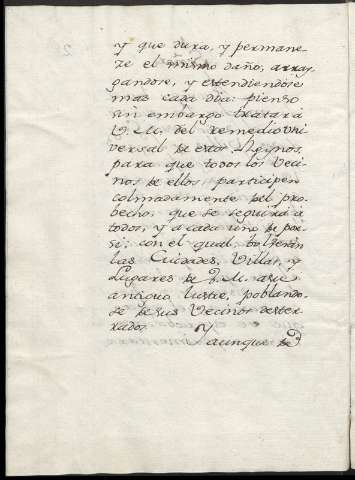 y que dura, y permane-
ze el mismo daño, array-
gandose, y estendiendose
mas cada dia: pienso
sin embargo tratará
V. M. del remedio Uni
versal de estos Reynos,
para que todos los Veci
nos de ellos participen
colmadamente del pro-
becho, que se seguirá a
todos, y a cada uno de por
si: con el qual bolberán
las Ciudades, Villas, y
Lugares de V. M. a su
antiguo lustre, poblando-
se de sus Vecinos dester-
rados.
Y aunque de